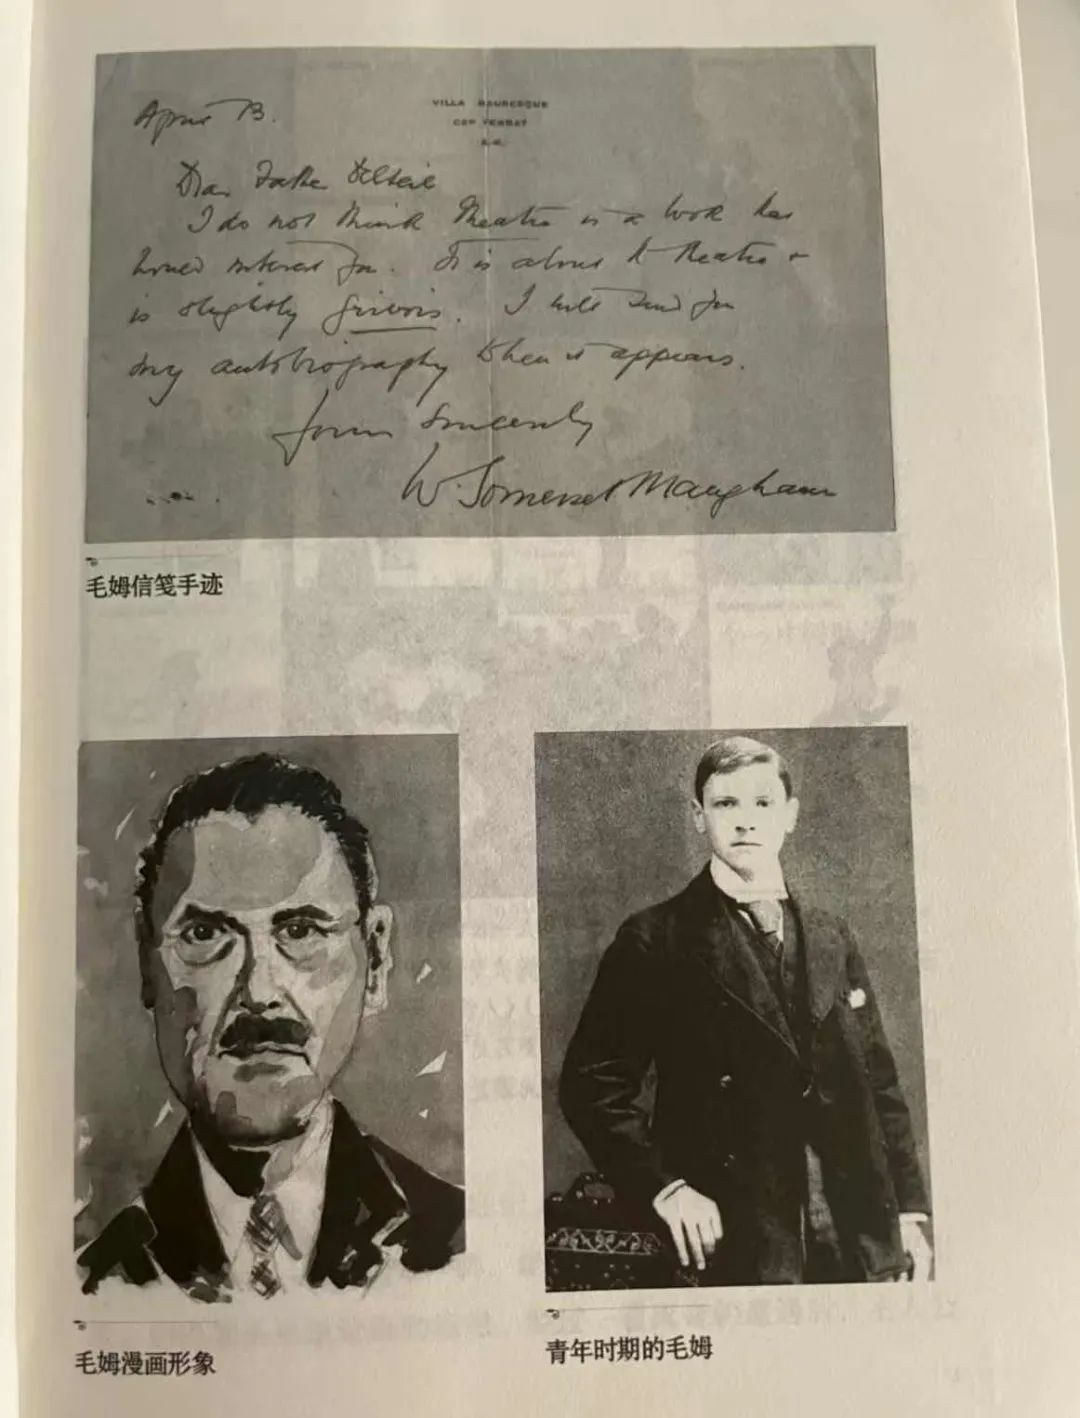 April 13.
VILLA MAURESQUE
CAP FERRAT
A.M.
Dear Father Delteil
I do not think Theatre is a book that
would interest you. It is about the theatre &
is slightly grivois. I will send you
my autobiography when it appears.
Yours sincerely
W. Somerset Maugham
毛姆信笺手迹
毛姆漫画形象
青年时期的毛姆